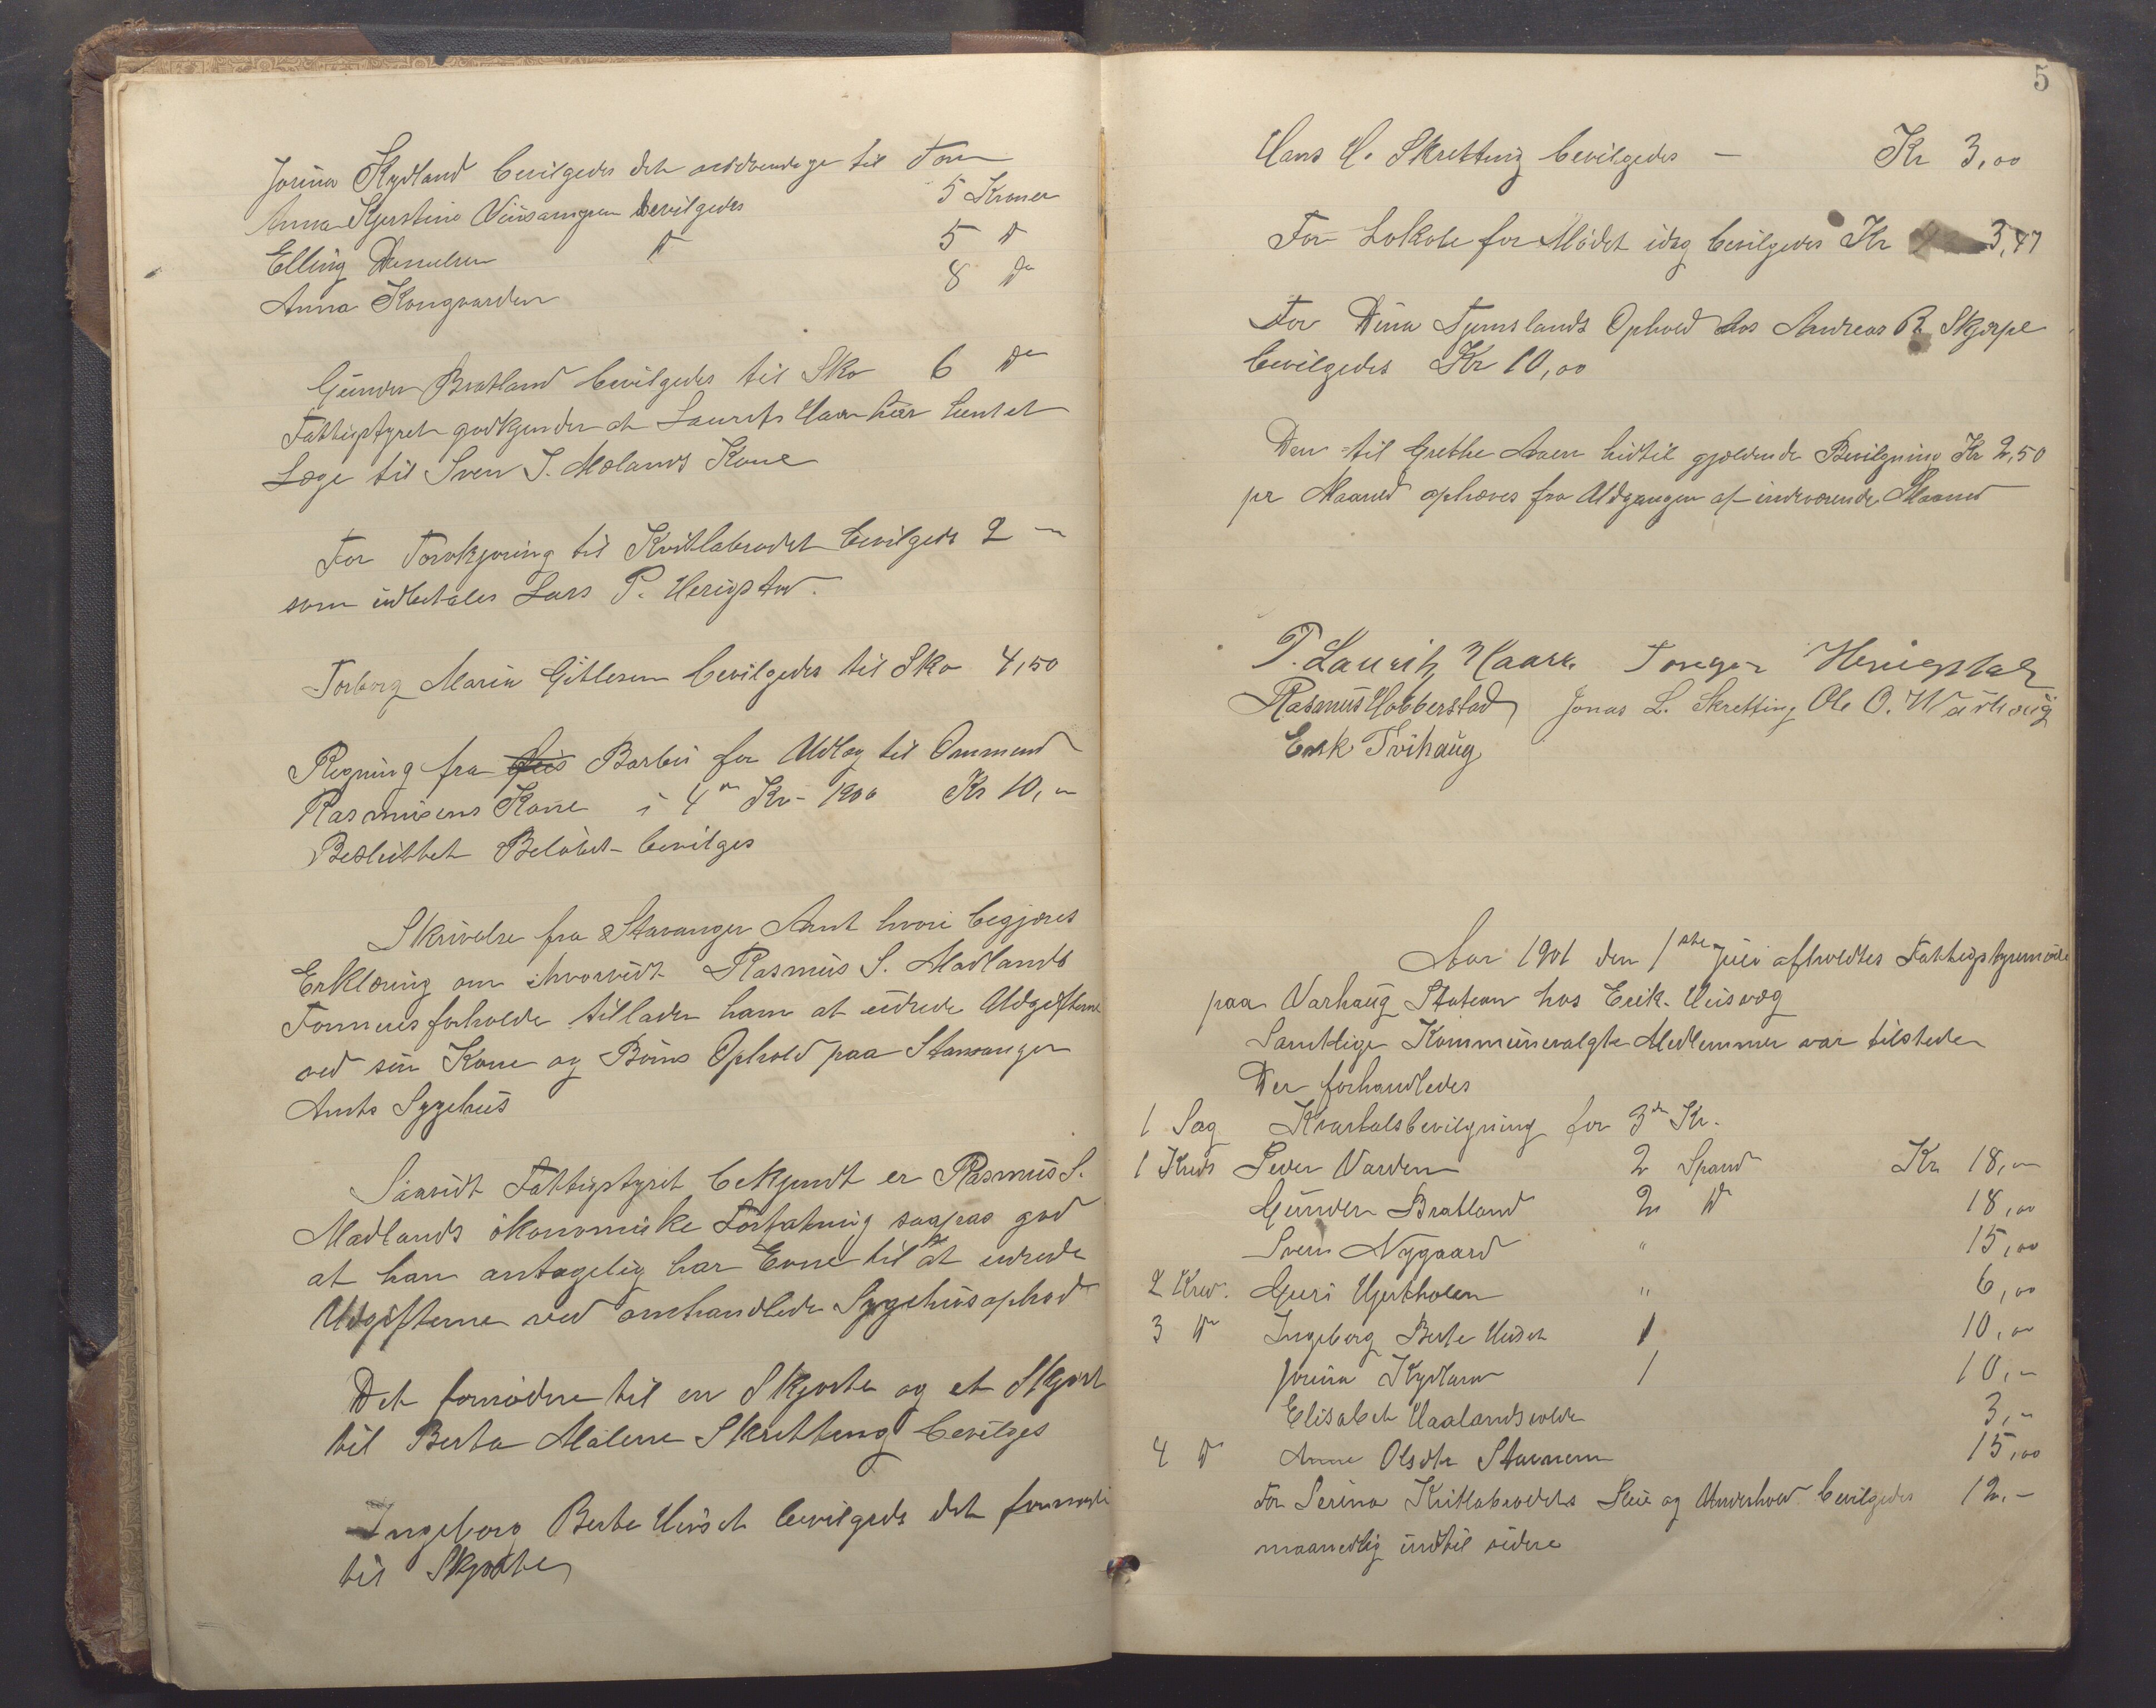 Jorina Kydland bevilgedes det nödvendige til Torv
Anna Kjerstine bevilgedes 5 Kroner
Elling Danielsen Do 5 Do
Anna Kongevarden 8 Do
Gunder Bratland bevilgedes til Sko 6 Do
Fattigstyret godkjender at Laurits Haar har hentet
Læge til Sven S. Mælands Kone
For Torvkjöring til Kvitlabrodet bevilgeds 2 „
som udbetales Lars P. Herigstad.
Torborg Maria Gitlesen bevilgedes til Sko 4,50
Regning fra Barbu for Udlæg til Ommund
Rasmusens Kone i 4de Kv. 1900 Kr 10,„
Besluttet Belöbet bevilges
Skrivelse fra Stavanger Amt hvori begjæres
Erklæring om hvorvidt Rasmus S. Madlands
Formuesforholde tillader ham at udrede Udgifterne
ved sin Kone og Börns Ophold paa Stavanger
Amts Sygehus
Saavidt Fattigstyret bekjendt er Rasmus S.
Madlands ökonomiske Forfatning saapas god
at han antagelig har Evne til at udrede
Udgifterne ved omhandlede Sygehusophold
Det fornödne til en Skjorte og et Skjört
til Berta Malene Skretting bevilges
Ingeborg Berte Uuset bevilgeds det fornödne
til Skjorte
5
Hans H. Skretting bevilgedes — Kr 3,00
For Lokale for Mödet idag bevilgedes Kr 3,47
For Dina Tjemslands Ophold hos Andreas R. Skjærpe
bevilgedes Kr 10,00
Den til Grethe Aaen hidtil gjældende Bevilgning Kr 2,50
pr Maaned ophæves fra Udgangen af indeværende Maaned
T. Lauritz Haar. Torger Herigstad
Rasmus Hobberstad Jonas L. Skretting Ole O. Warhaug
Erik Tvihaug
Aar 1901 den 1ste Juli afholdtes Fattigstyremöde
paa Varhaug Station hos Erik
Samtlige Kommunevalgte Medlemmer var tilstede
Der forhandledes
1 Sag Kvartalsbevilgning for 3de Kv.
1 Kreds Peder Varden 2 Spand Kr 18,„
Gunder Bratland 2 Do 18,00
Sven Nygaard „ 15,00
2 Kred. Guri Hjertholen „ 6,00
3 Do Ingeborg Berte Uuset 1 10,„
Jorina Kydland 1 10,„
Elisabet Haalandsvolden 3,„
4 Do Anne Olsdtr Stavnem 15,00
For Serina Kvitlabrodets Pleie og Underhold bevilgedes 12.–
maanedlig indtil videre